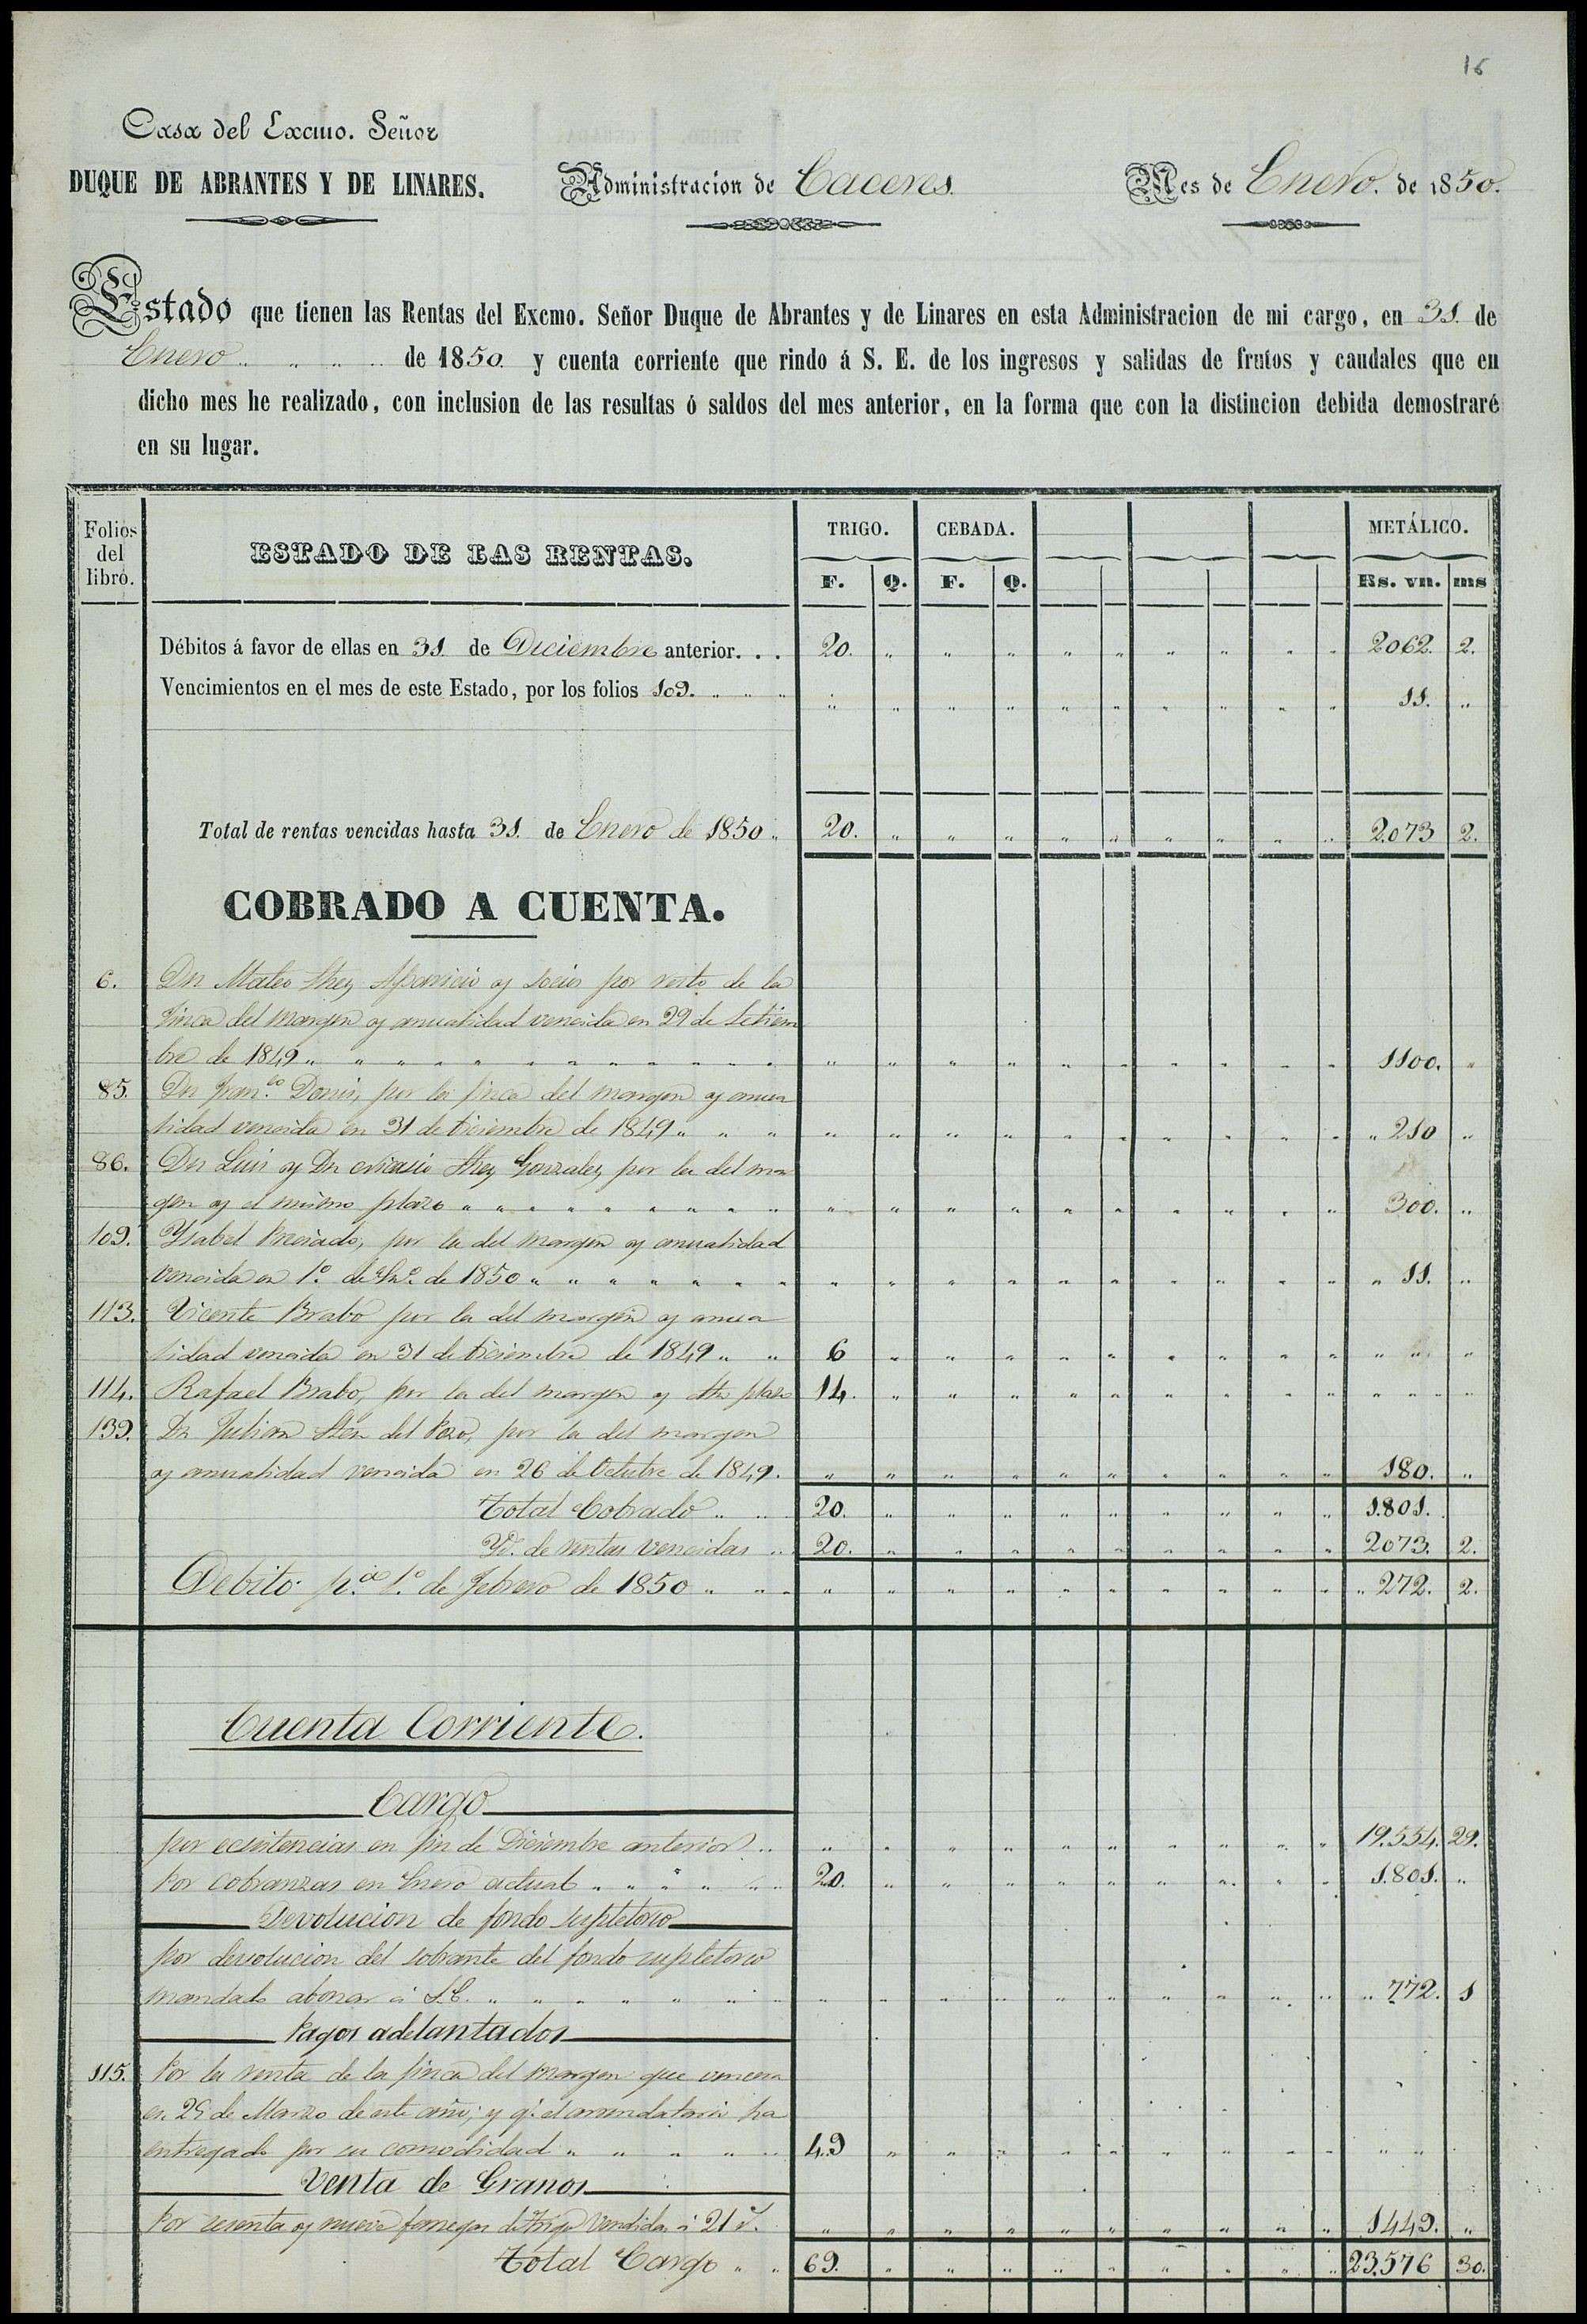 16
Casa del Excmo. Señor
DUQUE DE ABRANTES Y DE LINARES.
Administracion de Caceres.
Mes de Enero. de 1850.
Estado que tienen las Rentas del Excmo. Señor Duque de Abrantes y de Linares en esta Administracion de mi cargo, en 31. de
Enero " " " " de 1850. y cuenta corriente que rindo á S. E. de los ingresos y salidas de frutos y caudales que en
dicho mes he realizado, con inclusion de las resultas ó saldos del mes anterior, en la forma que con la distincion debida demostraré
en su lugar.
Folios del libro. ESTADO DE LAS RENTAS. TRIGO. CEBADA. METÁLICO.
F. Q. F. Q. Rs. vn. ms
Débitos á favor de ellas en 31. de Diciembre anterior. . . 20. " " " " " " " " " 2062. 2.
Vencimientos en el mes de este Estado, por los folios 109. " " " " " " " " " " " " " 11. "
Total de rentas vencidas hasta 31. de Enero de 1850 " 20. " " " " " " " " " 2.073 2.
COBRADO A CUENTA.
6. Dn Mateo Aparicio y socios por resto de la
finca del margen y anualidad vencida en 29 de Setiem
bre de 1849 " " " " " " " " " " " 1100. "
85. Dn Franco. Donis, por la finca del margen y anua
lidad vencida en 31 de Diciembre de 1849 " " " " " " " 210 "
86. Dn Luis y Dn Nicasio Gonzalez, por la del mar
gen y el mismo plazo " " " " " " " " " 300. "
109. Ysabel Preciado, por la del margen y anualidad
vencida en 1º. de Enº. de 1850 " " " " " " " " " 11. "
113. Vicente Brabo por la del margen y anua
lidad vencida en 31 de Diciembre de 1849 " " 6 " " " " " " " " " " " "
114. Rafael Brabo, por la del margen y dho plazo 14. " " " " " " " " " " " "
139. Dn Julian del Pozo, por la del margen
y anualidad vencida en 26 de Octubre de 1849. " " " " " " " " " " 180. "
Total Cobrado " " 20. " " " " " " " " " 1.801.
Yd. de rentas vencidas " 20. " " " " " " " " " 2073. 2.
Debito pa. 1º. de Febrero de 1850 " " " " " " " " " " " " " " 272. 2.
Cuenta Corriente.
Cargo
por ecsistencias en fin de Diciembre anterior " " " " " " " " " " " 19.554. 29.
Por cobranzas en Enero actual " " " " " " 20. " " " " " " " " " 1.801. "
Devolucion de fondo supletorio
por devolucion del sobrante del fondo supletorio
mandado abonar á S.E. " " " " " " " " " " " " 772. 1
Pagos adelantados
115. Por la renta de la finca del margen que vencera
en 25 de Marzo de este año; y q. el arrendatario ha
entregado por su comodidad " " " " " 49 " " " " " " " " " " "
Venta de Granos
Por sesenta y nueve fanegas de trigo vendidas á 21 r. " " " " " " " " " " 1449. "
Total Cargo " " 69. " " " " " " " " " 23.576 30.